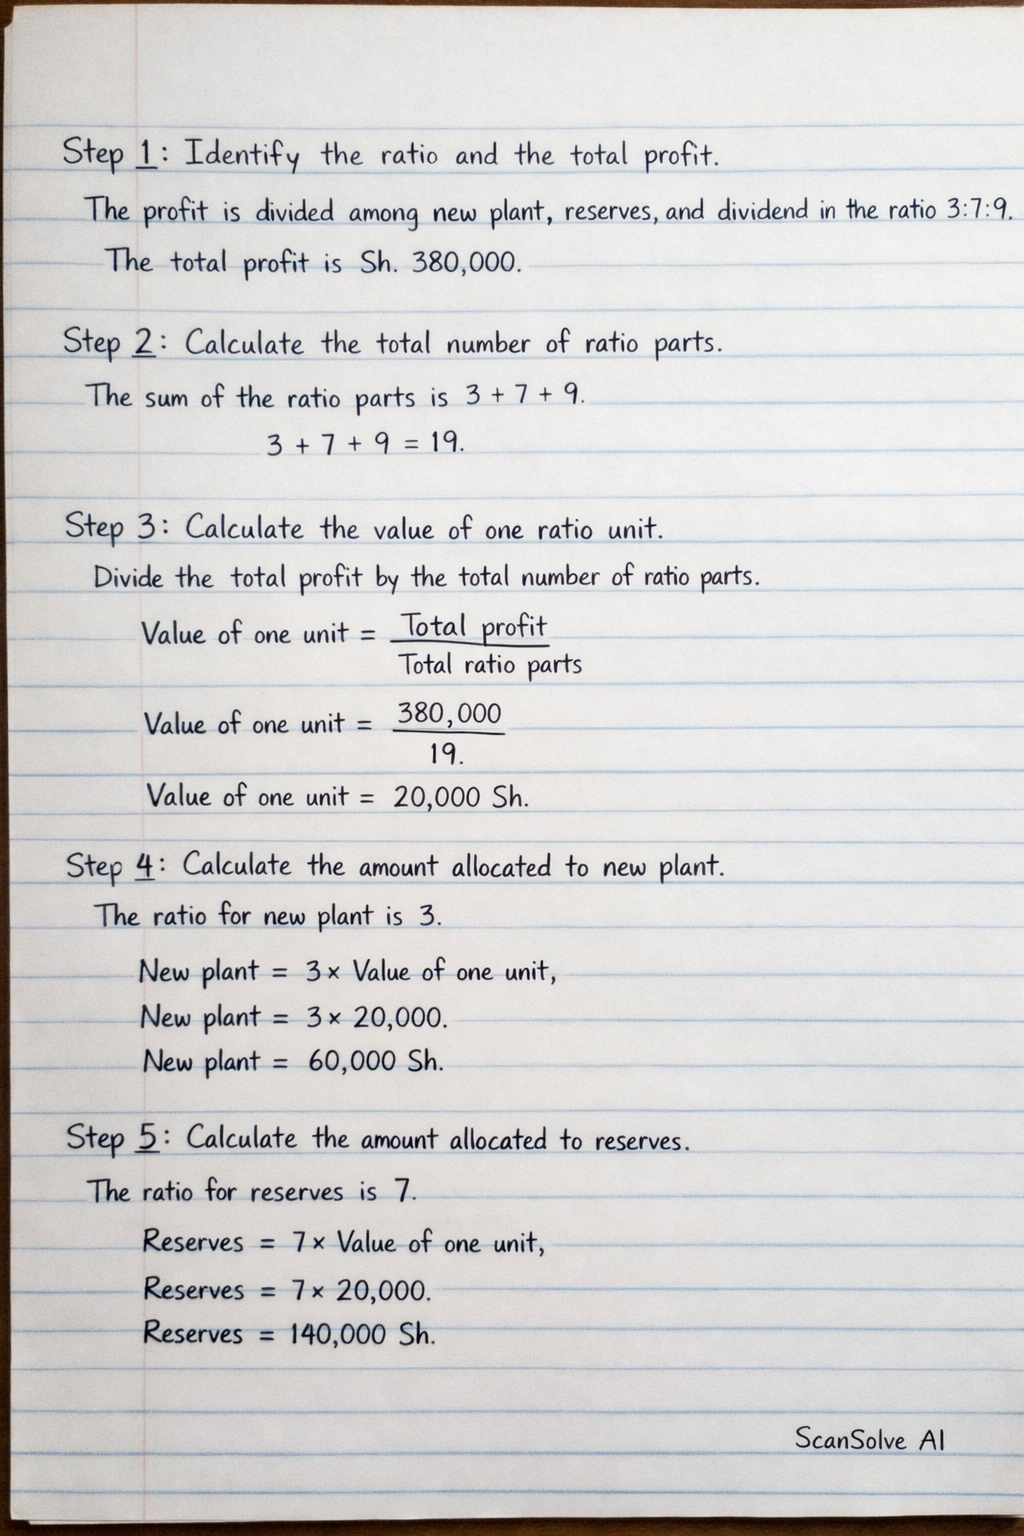 Step 1: Identify the ratio and the total profit.
The profit is divided among new plant, reserves, and dividend in the ratio 3:7:9.
The total profit is Sh. 380,000.
Step 2: Calculate the total number of ratio parts.
The sum of the ratio parts is 3 + 7 + 9.
3 + 7 + 9 = 19.
Step 3: Calculate the value of one ratio unit.
Divide the total profit by the total number of ratio parts.
Value of one unit = Total profit
Total ratio parts
Value of one unit = 380,000
19.
Value of one unit = 20,000 Sh.
Step 4: Calculate the amount allocated to new plant.
The ratio for new plant is 3.
New plant = 3 × Value of one unit,
New plant = 3 × 20,000.
New plant = 60,000 Sh.
Step 5: Calculate the amount allocated to reserves.
The ratio for reserves is 7.
Reserves = 7 × Value of one unit,
Reserves = 7 × 20,000.
Reserves = 140,000 Sh.
ScanSolve AI